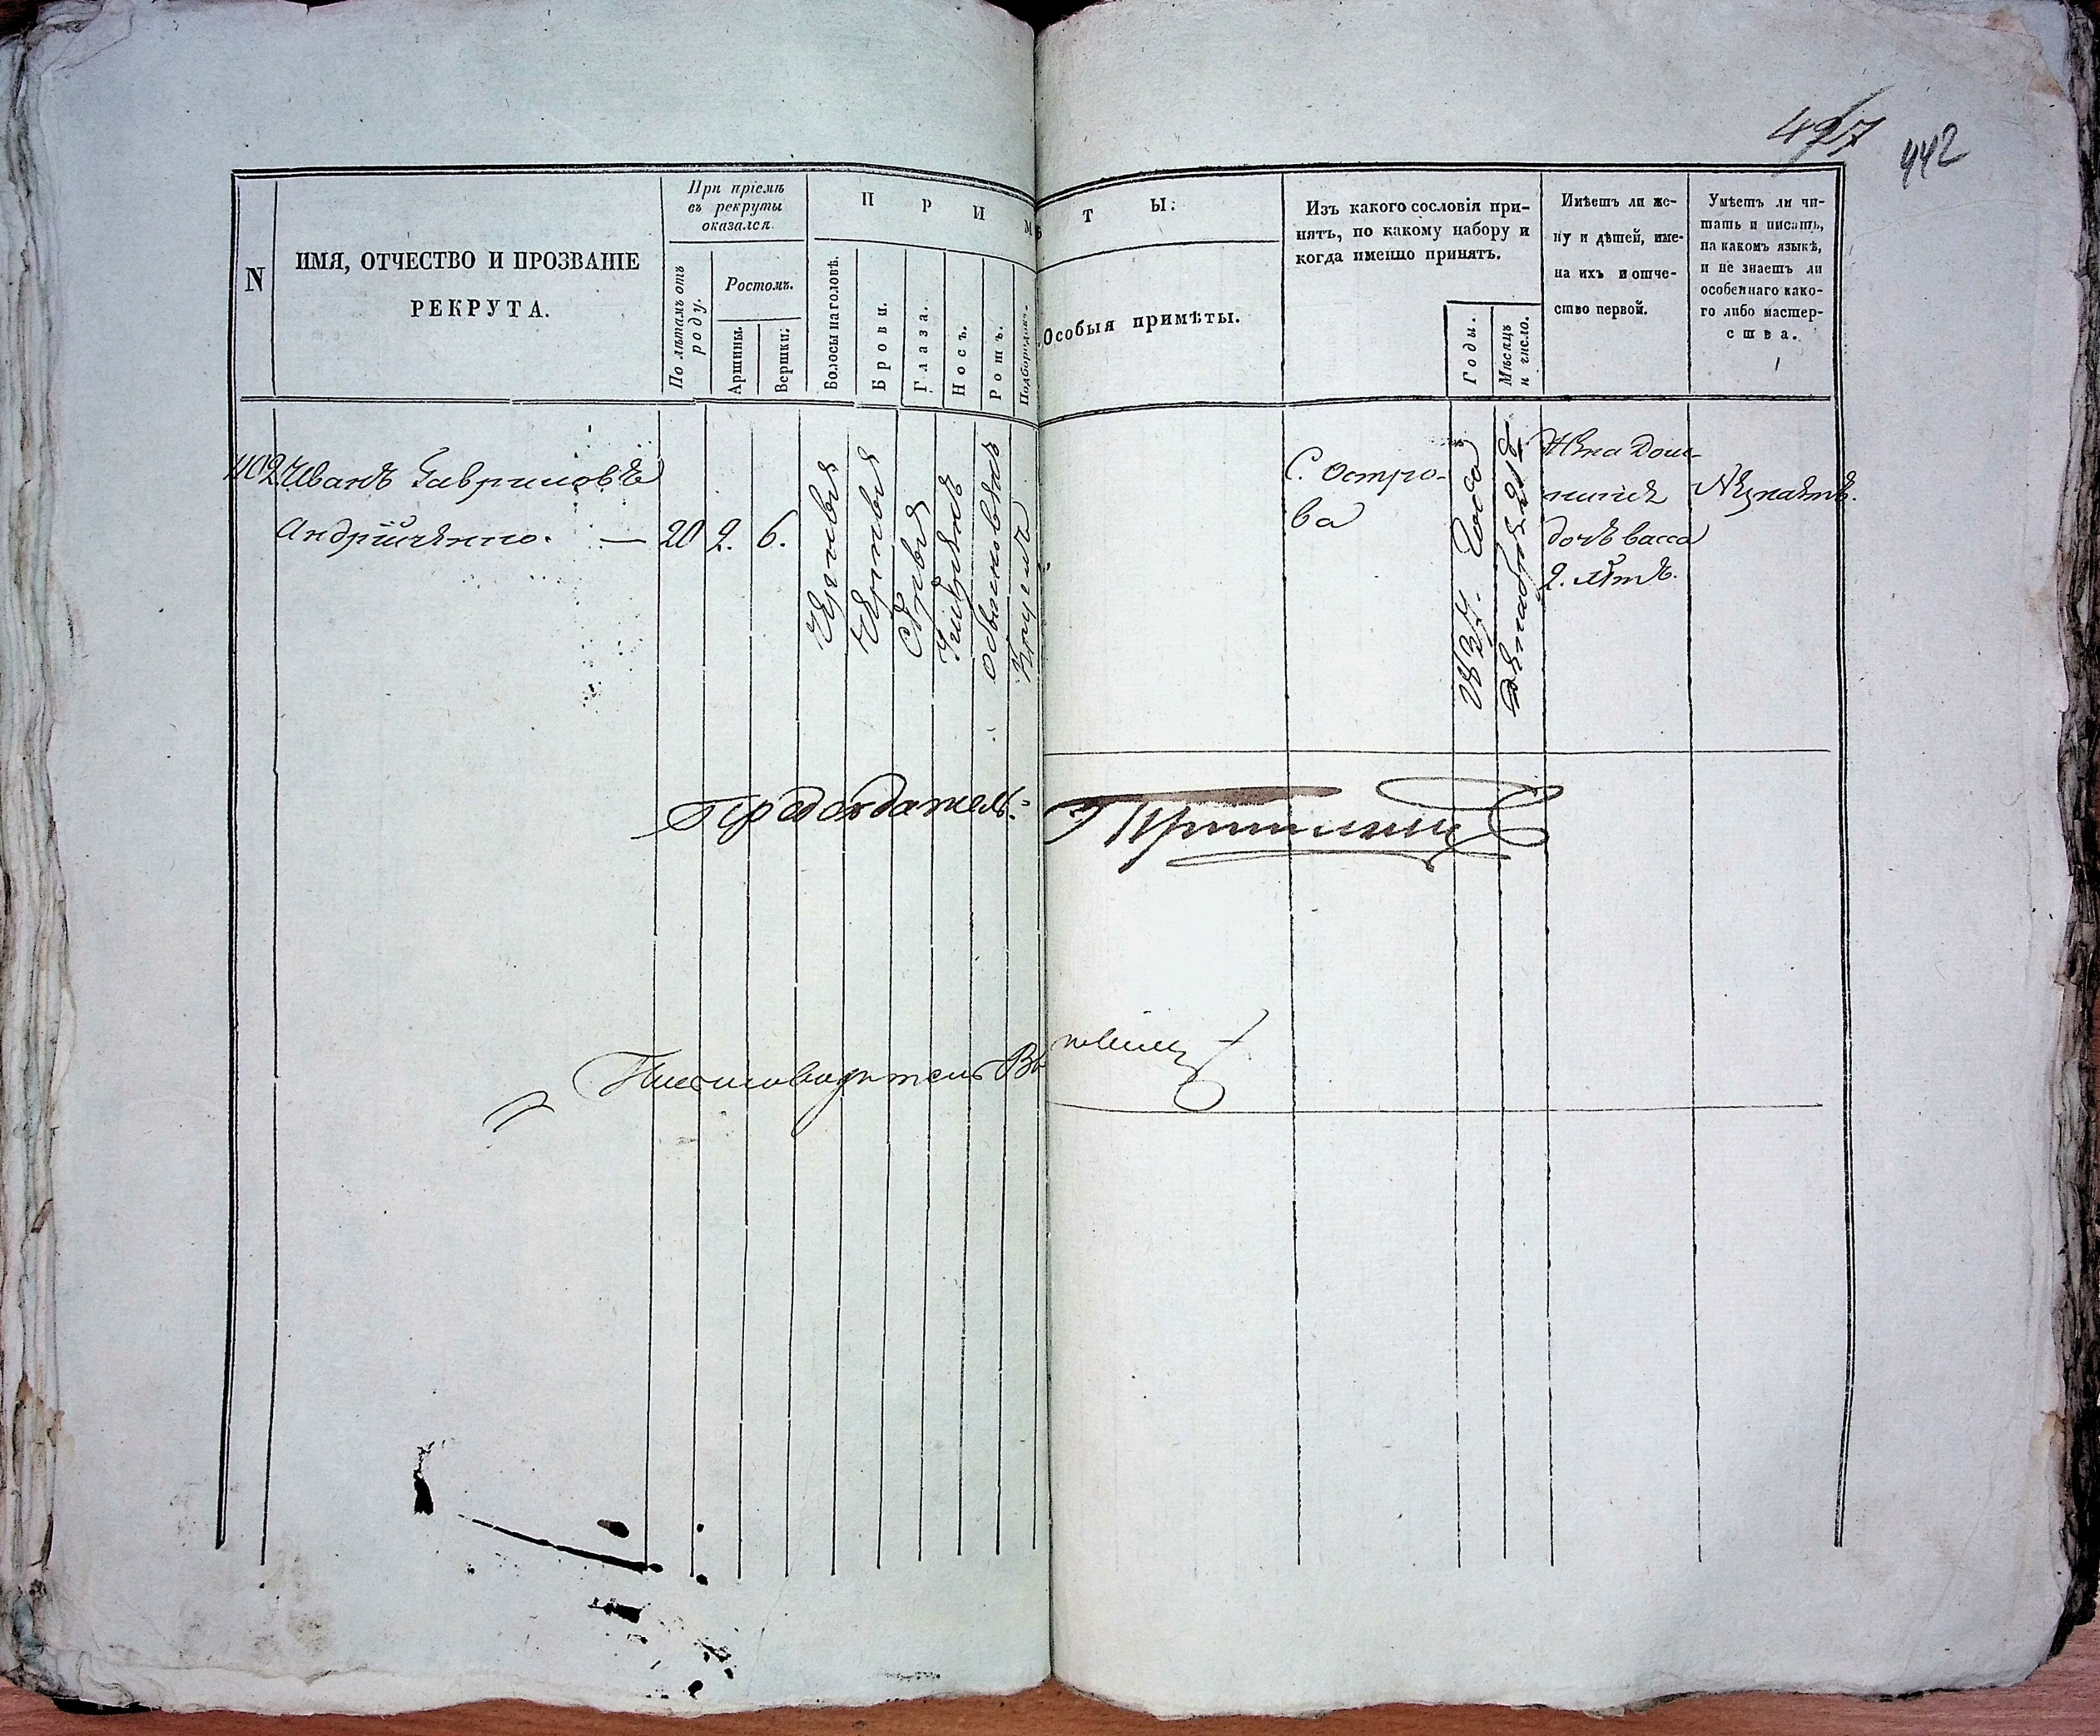 427
442
N
ИМЯ, ОТЧЕСТВО И ПРОЗВАНІЕ
РЕКРУТА.
При пріемѣ
въ рекруты
оказался.
По лѣтамъ отъ
роду.
Ростомъ.
Аршины.
Вершки.
П Р И М Ѣ Т Ы:
Волосы на головѣ.
Брови.
Глаза.
Носъ.
Ротъ.
Подбородокъ.
Особыя примѣты.
Изъ какого сословія при-
нятъ, по какому набору и
когда именно принятъ.
Годы.
Мѣсяцъ
и число.
Имѣетъ ли же-
ну и дѣтей, име-
на ихъ и отче-
ство первой.
Умѣетъ ли чи-
тать и писать,
на какомъ языкѣ,
и не знаетъ ли
особеннаго како-
го либо мастер-
ства.
1102 Иванъ Гавриловъ
Андрійченко. — 20 2. 6.
Чернывя
Чернывя
Сѣрывя
Обыкновенъ
С. Остро-
ва
183 . Года
Жена Дом-
дочь васса
2. лѣтъ.
Незнаетъ.
Предсѣдатель
Письмоводитель